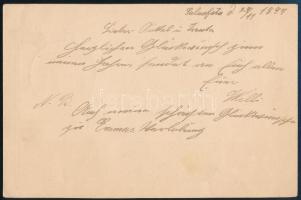 d 29/11 1899
Lieber Onkel u Tante
Herzlichen Glückwunsch zum
neuen Jahre sendet an Euch allen
Euer
Willi
N. B.
Auch meine Glückwünsche
zu Verlobung